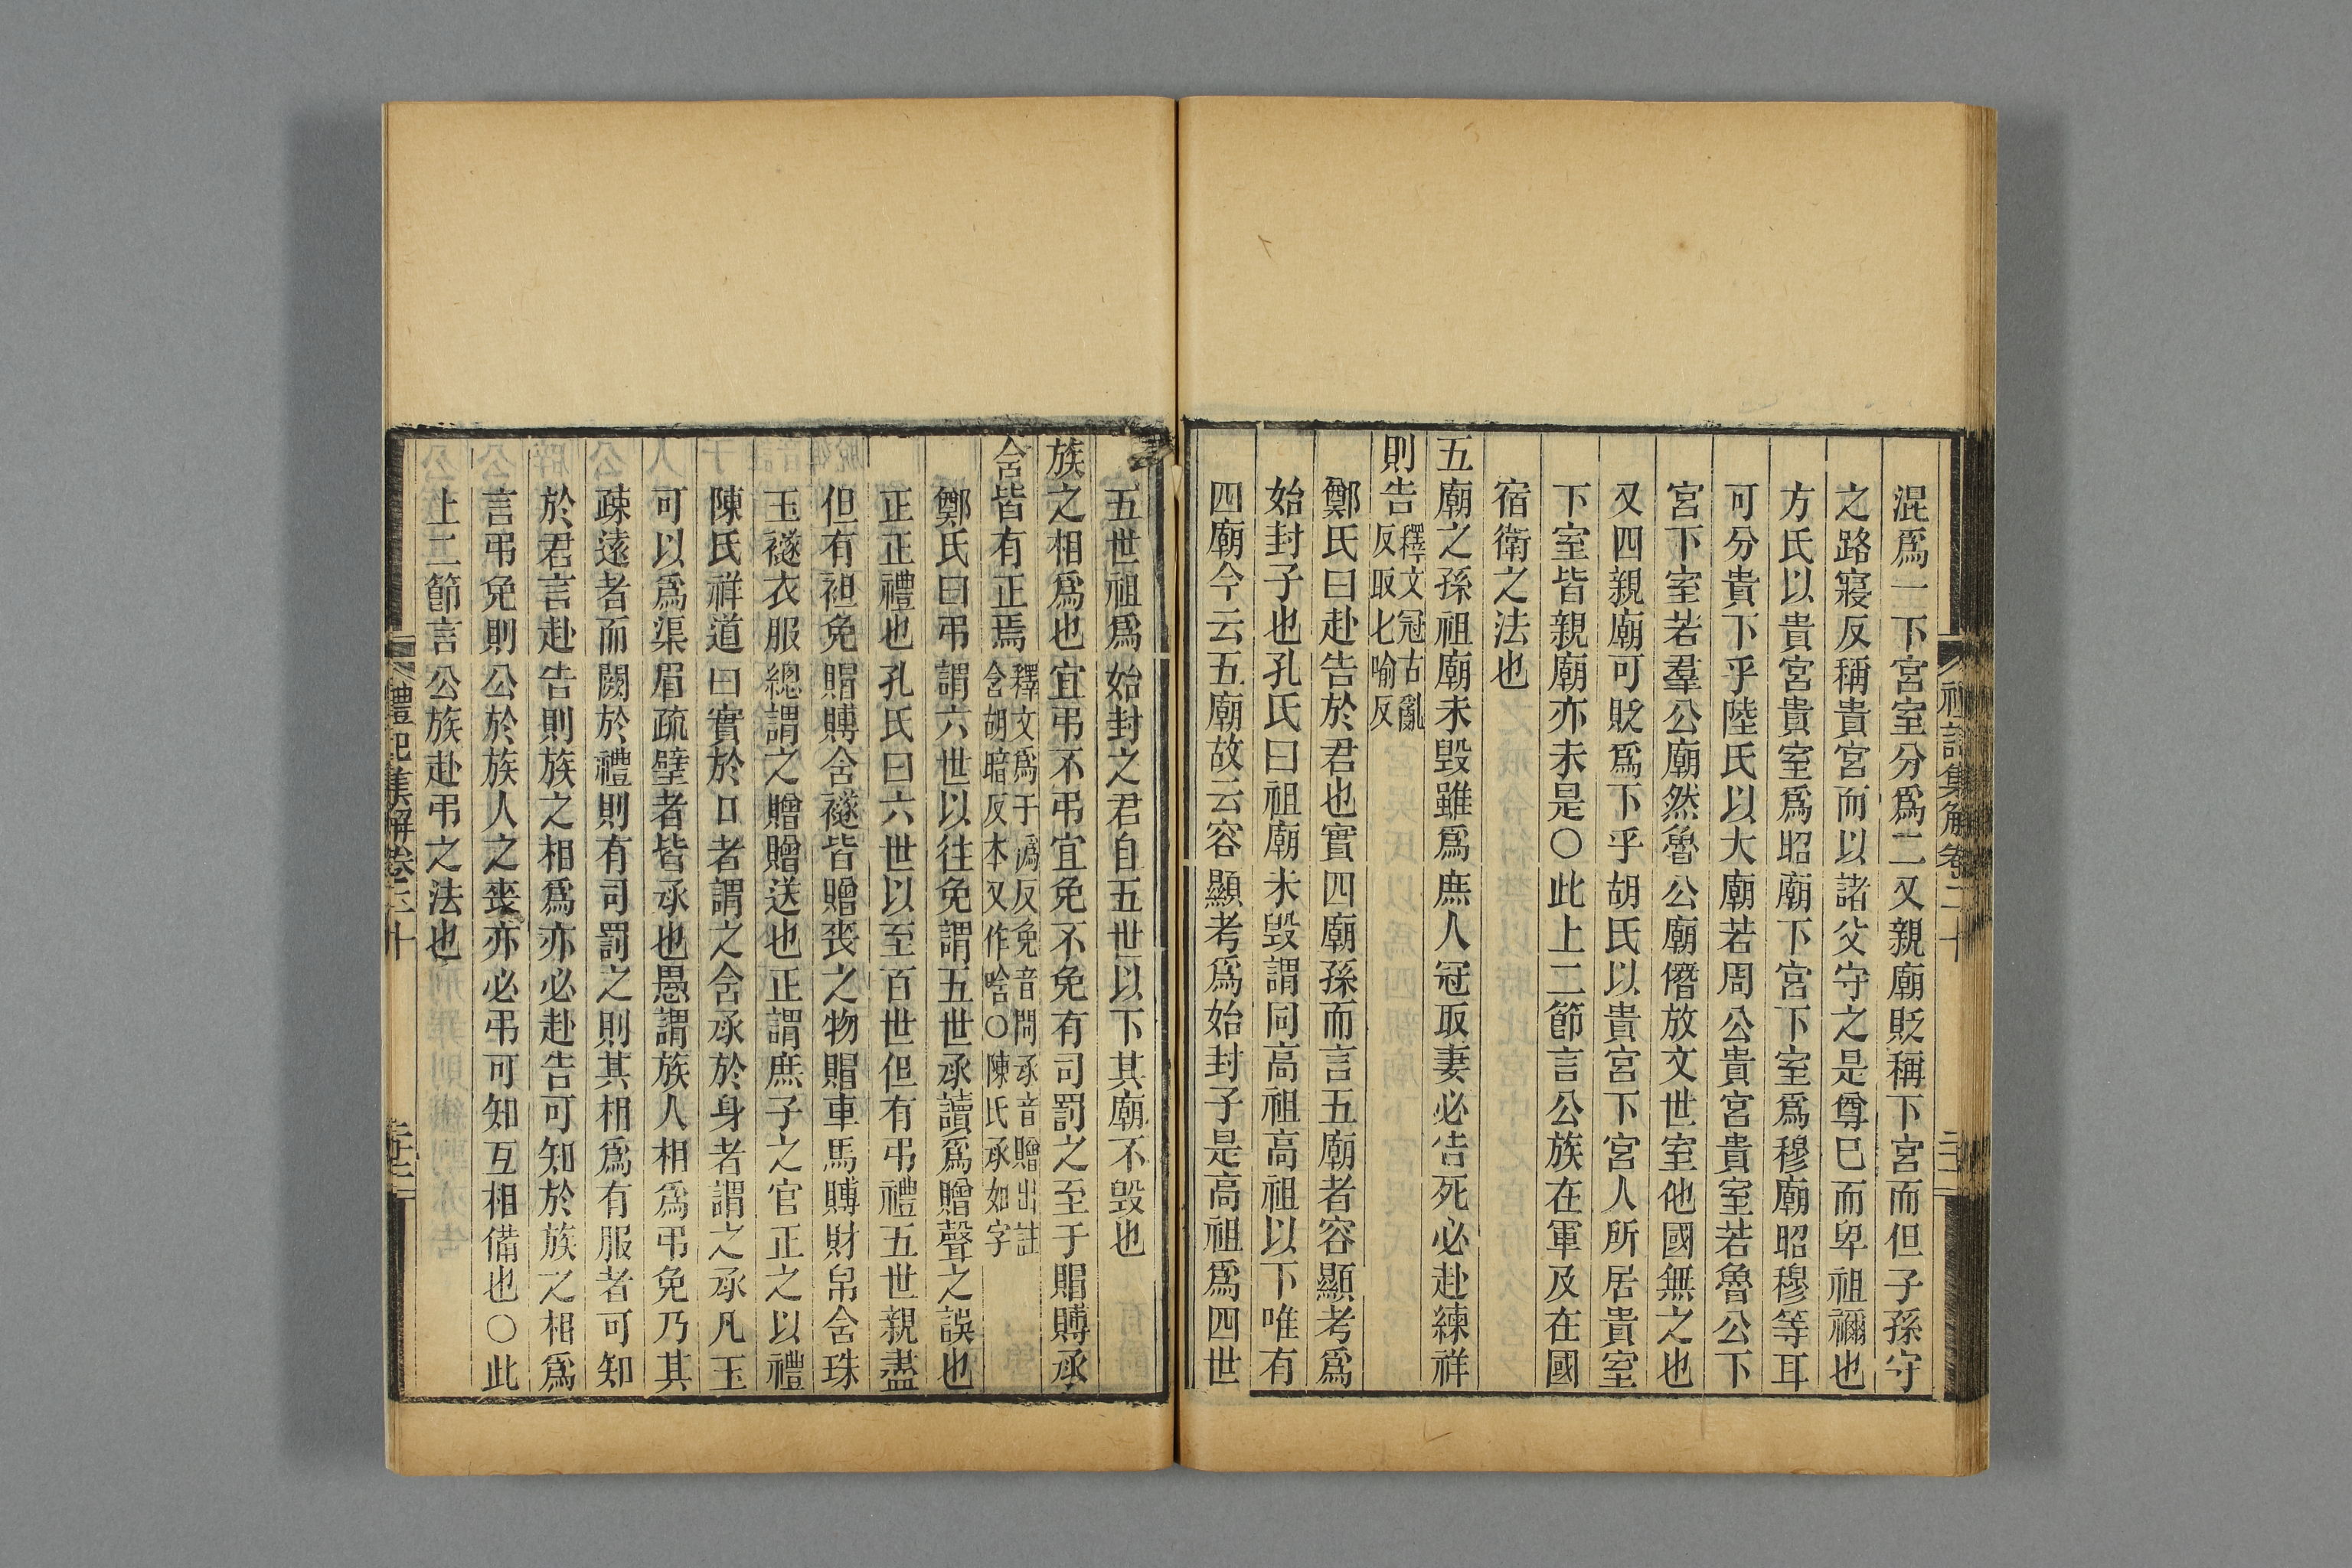 混爲一下宮室分爲二又親廟貶稱下宮而但子孫守
之路寢反稱貴宮而以諸父守之是尊巳而卑祖禰也
方氏以貴宮貴室爲昭廟下宮下室爲穆廟昭穆等耳
可分貴下乎陸氏以大廟若周公貴宮貴室若魯公下
宮下室若羣公廟然魯公廟僭放文世室他國無之也
又四親廟可貶爲下乎胡氏以貴宮下宮人所居貴室
下室皆親廟亦未是〇此上二節言公族在軍及在國
宿衛之法也
五廟之孫祖廟未毀雖爲庶人冠取妻必告死必赴練祥
則告釋文冠古亂反取七喻反
鄭氏曰赴告於君也實四廟孫而言五廟者容顯考爲
始封子也孔氏曰祖廟未毀謂同高祖高祖以下唯有
四廟今云五廟故云容顯考爲始封子是高祖爲四世
禮記集解卷二十
五世祖爲始封之君自五世以下其廟不毀也
族之相爲也宜弔不弔宜免不免有司罰之至于賵賻承
含皆有正焉釋文爲于僞反免音問承音贈出註含胡暗反本又作唅〇陳氏承如字
鄭氏曰弔謂六世以往免謂五世承讀爲贈聲之誤也
正正禮也孔氏曰六世以至百世但有弔禮五世親盡
但有袒免賵賻含襚皆贈喪之物賵車馬賻財帛含珠
玉襚衣服總謂之贈贈送也正謂庶子之官正之以禮
陳氏祥道曰實於口者謂之含承於身者謂之承凡玉
可以爲渠眉疏璧者皆承也愚謂族人相爲弔免乃其
疎遠者而闕於禮則有司罰之則其相爲有服者可知
於君言赴告則族之相爲亦必赴告可知於族之相爲
言弔免則公於族人之喪亦必弔可知互相備也〇此
上二節言公族赴弔之法也
禮記集解卷二十